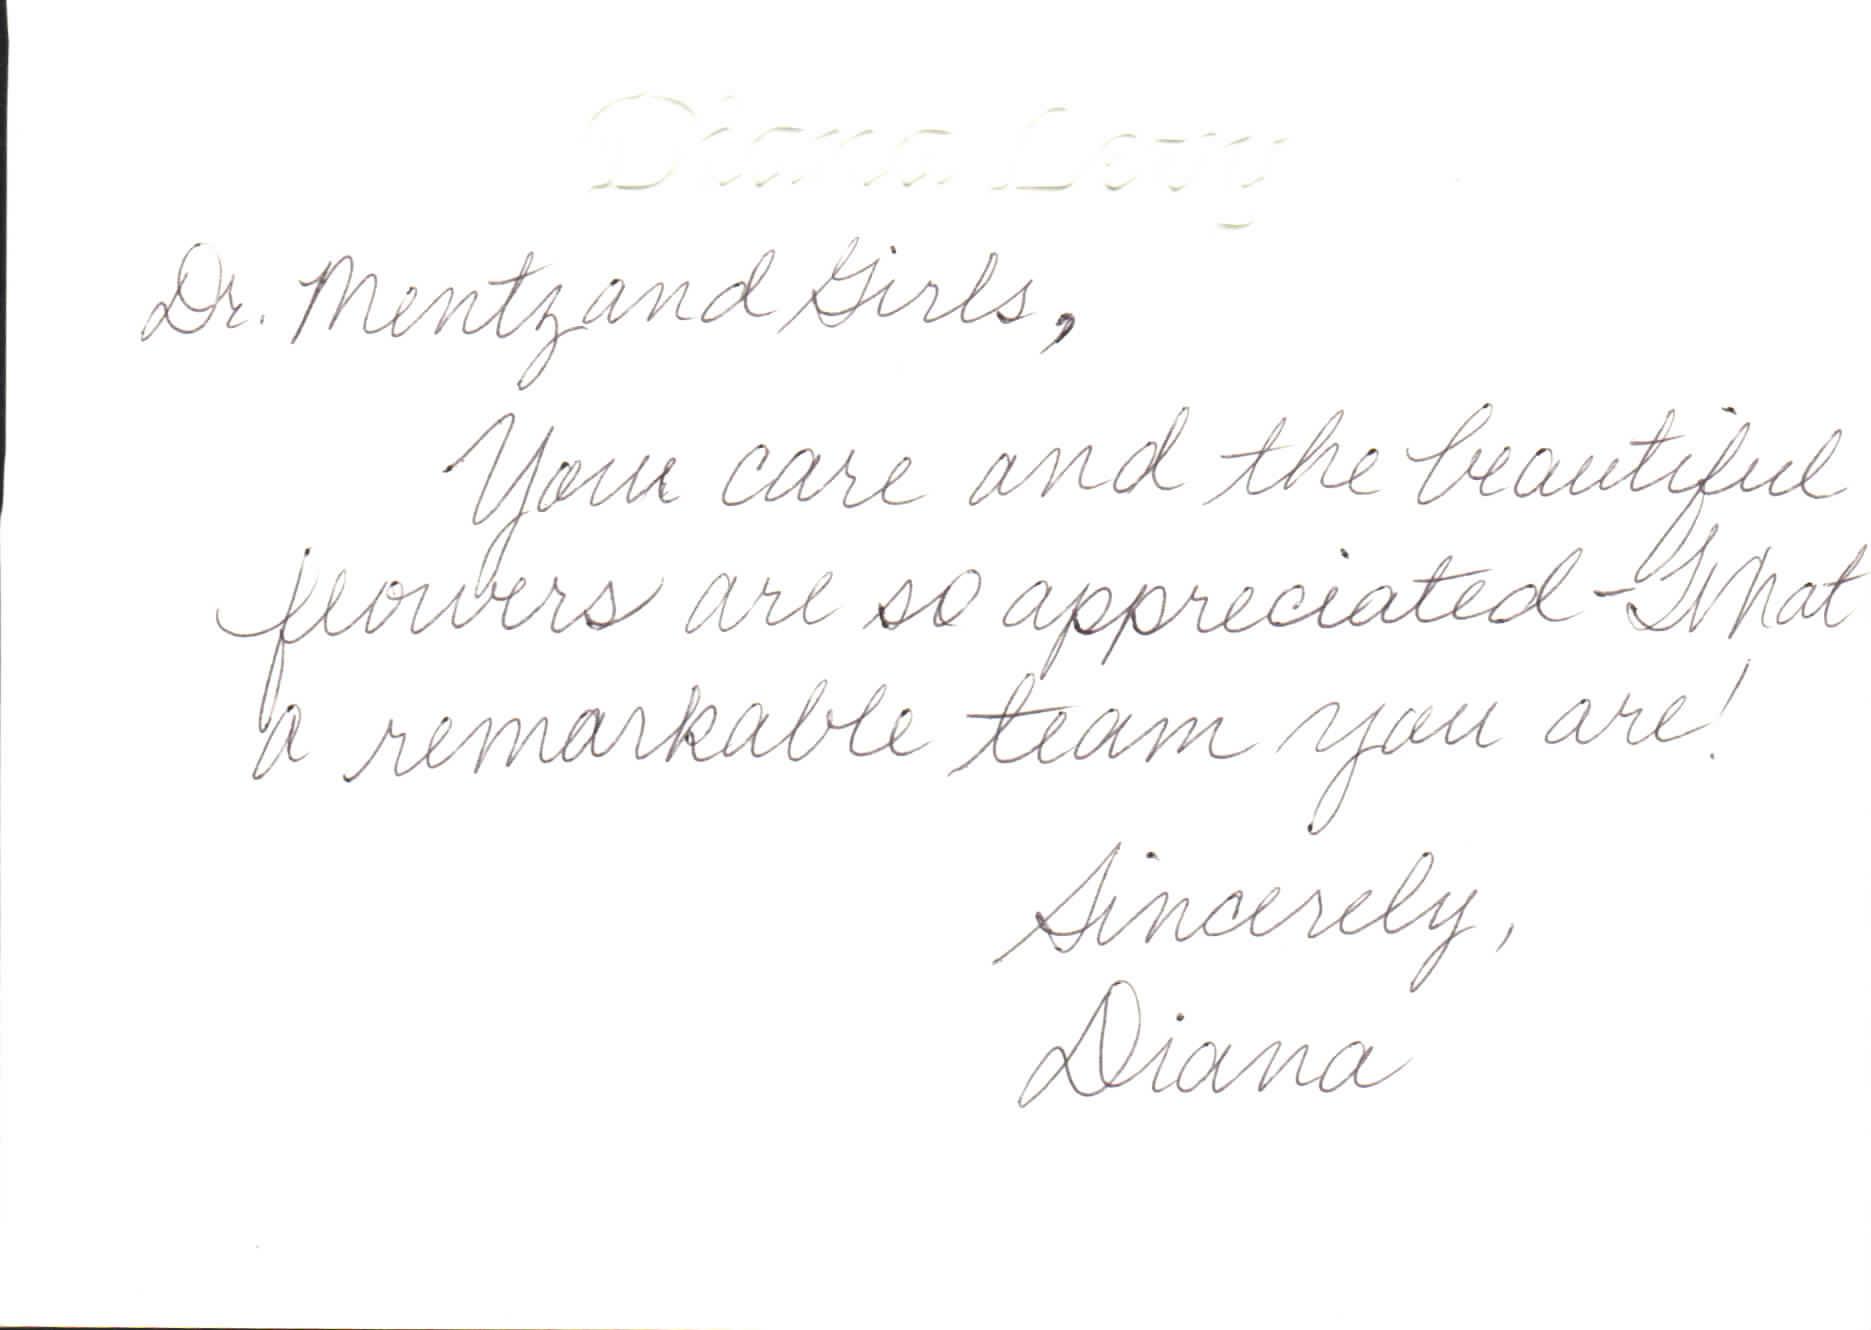 Diana Levy
Dr. Mentz and Girls,
Your care and the beautiful
flowers are so appreciated - What
a remarkable team you are!
Sincerely,
Diana